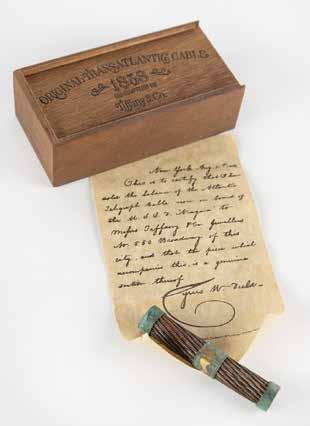 ORIGINAL TRANSATLANTIC CABLE
1858
Tiffany & Co.
New York Aug.
This is to certify that I have
sold the balance of the Atlantic
Telegraph Cable now on board of
the U.S.S. Niagara to
Messrs Tiffany & Co Jewellers
No. 550 Broadway of this
city, and that the piece which
accompanies this, is a genuine
section thereof.
Cyrus W. Field